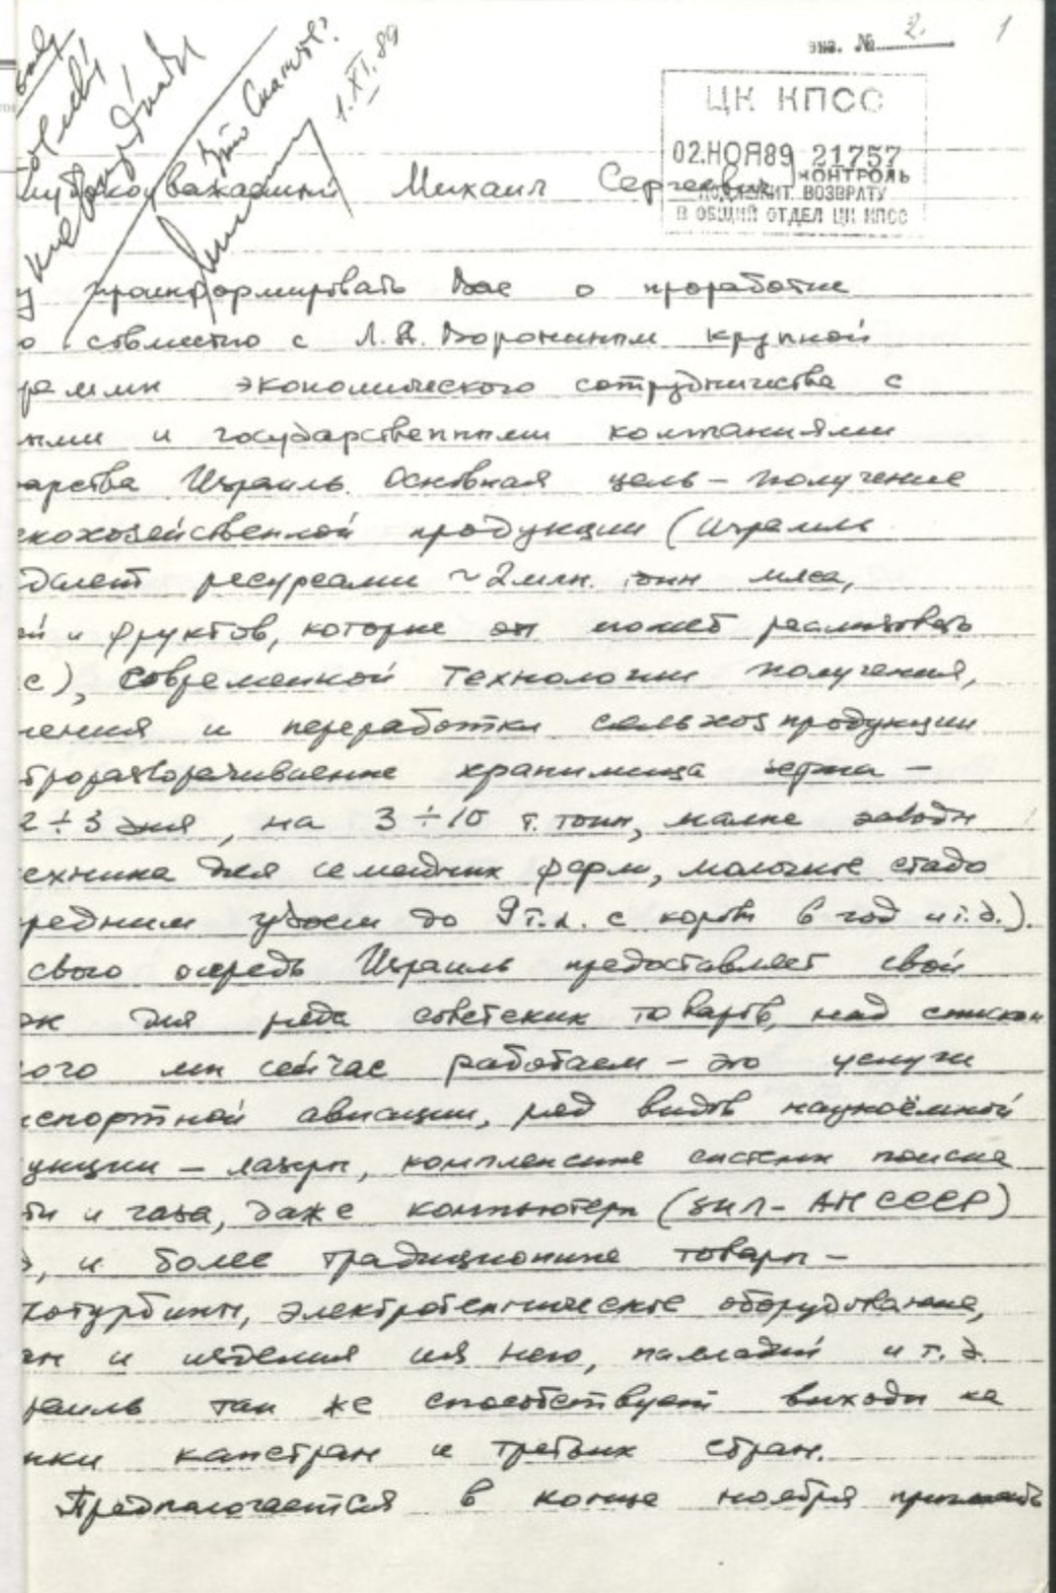 экз. № 2. 1
ЦК КПСС
02.НОЯ89 21757
КОНТРОЛЬ
ПОДЛЕЖИТ ВОЗВРАТУ
В ОБЩИЙ ОТДЕЛ ЦК КПСС
1.XI.89
лубокоуважаемый Михаил Сергеевич
у проинформировать Вас о проработке
о совместно с Л.А. Ворониным крупной
раммы экономического сотрудничества с
ными и государственными компаниями
арства Израиль. Основная цель – получение
скохозяйственной продукции (Израиль
дает ресурсами ~2 млн. тонн мяса,
ей и фруктов, которые он может реализовать
с), современной технологии получения,
нения и переработки сельхозпродукции
троразворачиваемые хранилища –
2÷3 дня, на 3÷10 т. тонн, малые заводы
ехника для семейных ферм, молочное стадо
редним удоем до 9 т.л. с коровы в год и т.д.).
свою очередь Израиль предоставляет свой
ок для ряда советских товаров, над списком
ого мы сейчас работаем – это услуги
нспортной авиации, ряд видов наукоёмкой
укции – лазеры, комплексные системы поиска
ти и газа, даже компьютеры (ЗИЛ - АН СССР)
, и более традиционные товары –
отурбины, электротехническое оборудование,
ан и изделия из него, палладий и т.д.
раиль так же способствует выходу на
нки капстран и третьих стран.
Предполагается в конце ноября